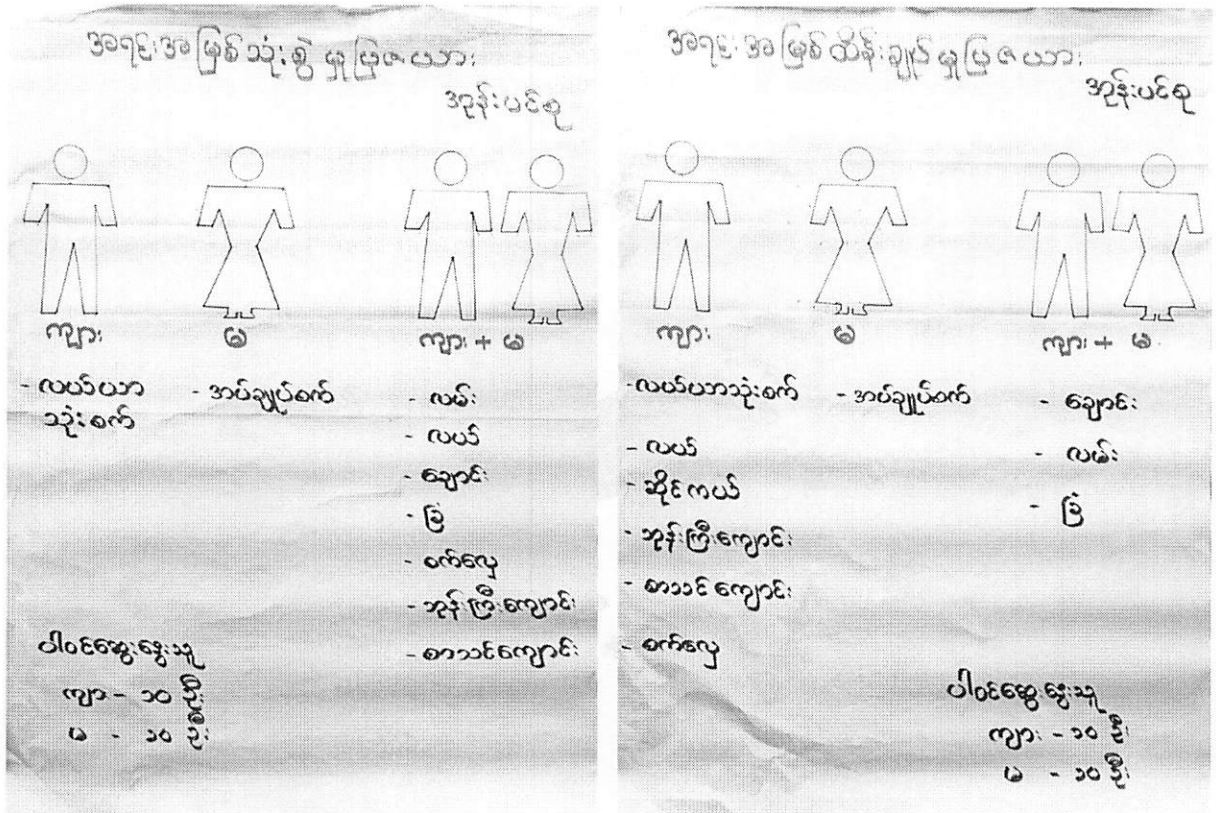 အရင်းအမြစ်သုံးစွဲမှုပြဇယား
အုန်းပင်စု
ကျား
မ
ကျား + မ
- လယ်ယာ
သုံးစက်
- အပ်ချုပ်စက်
- လမ်း
- လယ်
- ချောင်း
- ခြံ
- စက်လှေ
- ဘုန်းကြီးကျောင်း
- စာသင်ကျောင်း
ပါဝင်ဆွေးနွေးသူ
ကျား - ၁၀ ဦး
မ - ၁၀ ဦး
အရင်းအမြစ်ထိန်းချုပ်မှုပြဇယား
အုန်းပင်စု
ကျား
မ
ကျား + မ
- လယ်ယာသုံးစက်
- လယ်
- ဆိုင်ကယ်
- ဘုန်းကြီးကျောင်း
- စာသင်ကျောင်း
- စက်လှေ
- အပ်ချုပ်စက်
- ချောင်း
- လမ်း
- ခြံ
ပါဝင်ဆွေးနွေးသူ
ကျား - ၁၀ ဦး
မ - ၁၀ ဦး